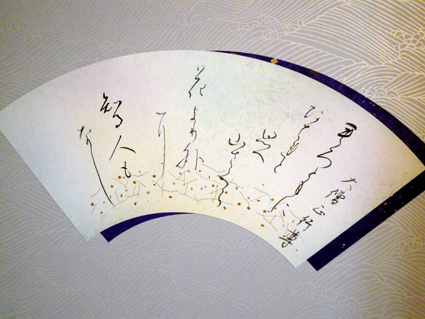 大僧正行尊
もろともに
あはれと
思へ
山さくら
花より外
に
知人も
なし